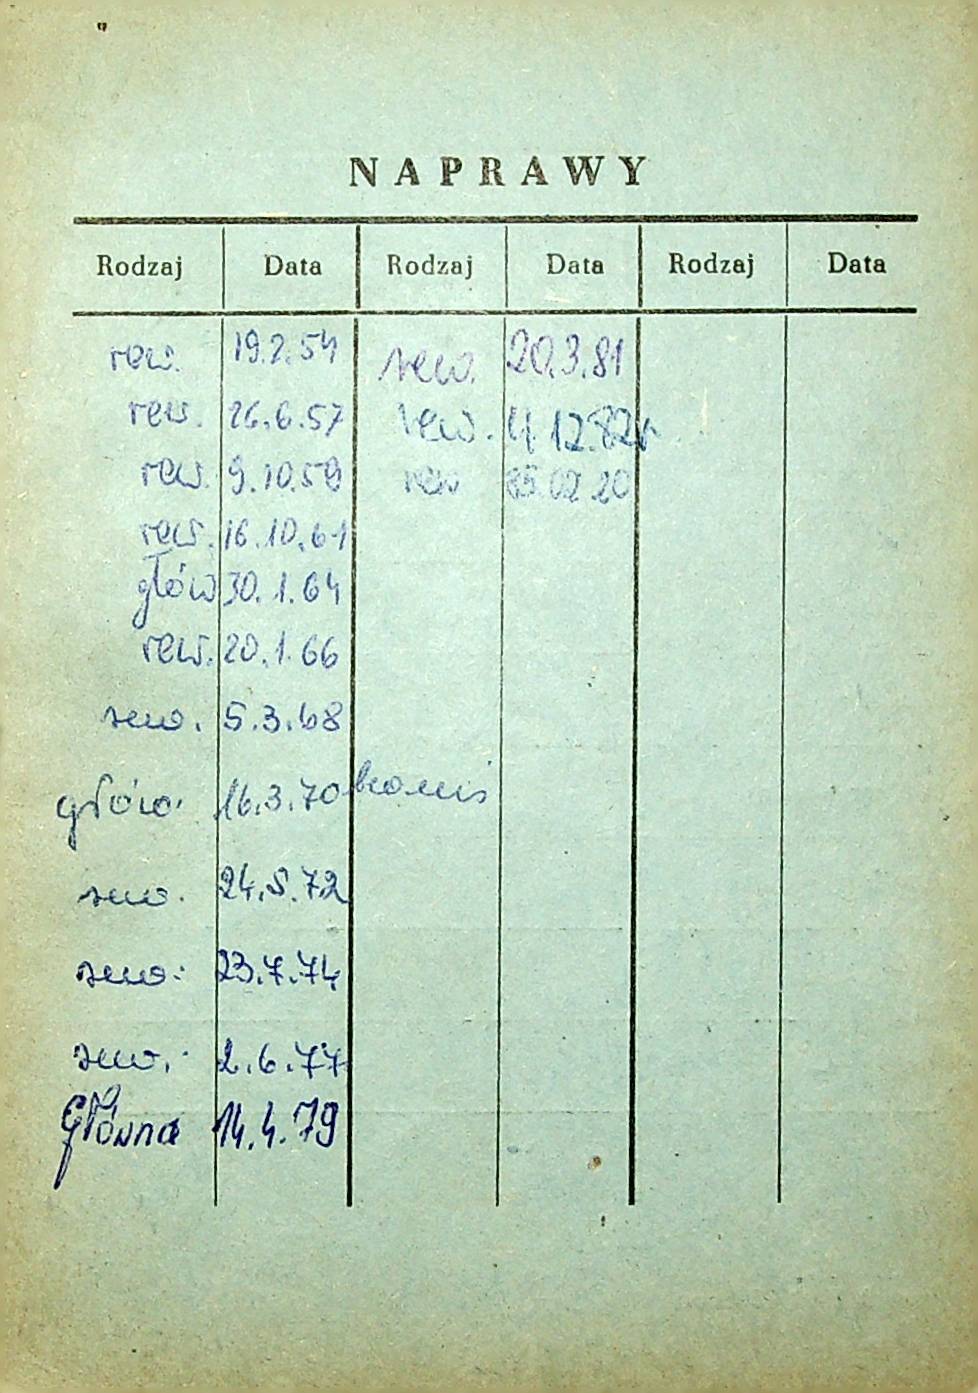 NAPRAWY
Rodzaj Data Rodzaj Data Rodzaj Data
rew. 19.2.54 rew. 20.3.81
rew. 26.6.57 rew. 4 12.82r
rew. 9.10.59 rew 85.02 20
rew. 16.10.61
głów 30.1.64
rew. 20.1.66
rew. 5.3.68
głów. 16.3.70
rew. 24.5.72
rew. 23.7.74
rew. 2.6.77
Główna 14.4.79